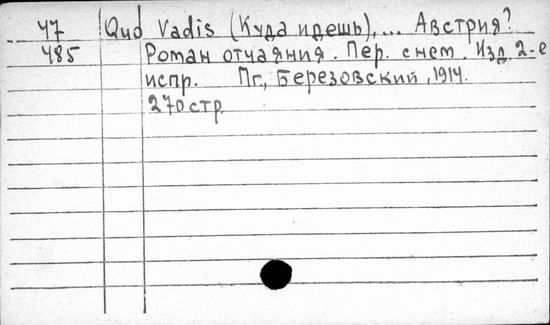 47 Quo Vadis (Куда идешь),... Австрия?
485 Роман отчаяния. Пер. с нем. Изд. 2-е
испр. Пг., Березовский, 1914.
270 стр.